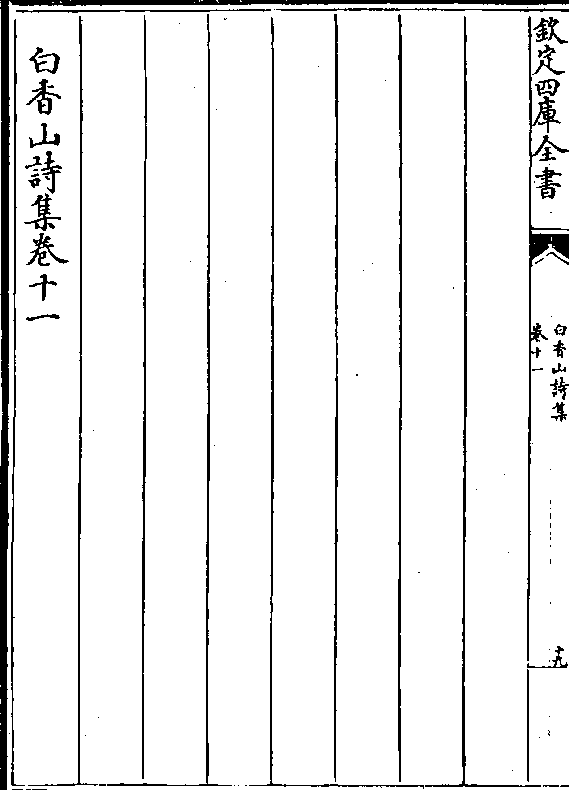 欽定四庫全書
白香山詩集
卷十一
十九
白香山詩集卷十一